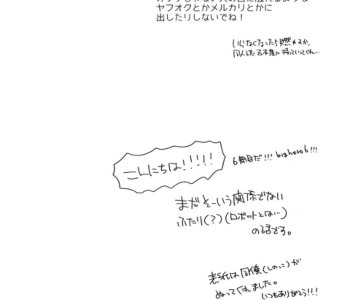 ヤフオクとかメルカリとかに
出したりしないでね！
いらなくなったら燃やすか、
同人した古本屋に持っていってね…
こんにちは!!!!!
6冊目だ!!! bighero6!!!
まだそーいう関係でない
ふたり(?)(ロボットとは…)
の話です。
表紙は同僚(しのっこ)が
ぬってくれました。
いつもありがとう!!!